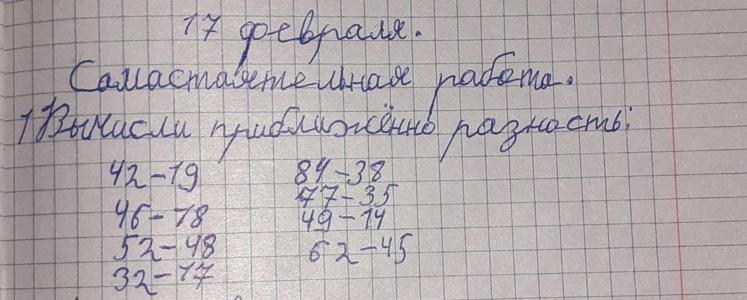 17 февраля.
Самастаятельная работа.
1 Вычисли приближённо разность:
42-19 84-38
77-35
46-18 49-14
52-48 62-45
32-17